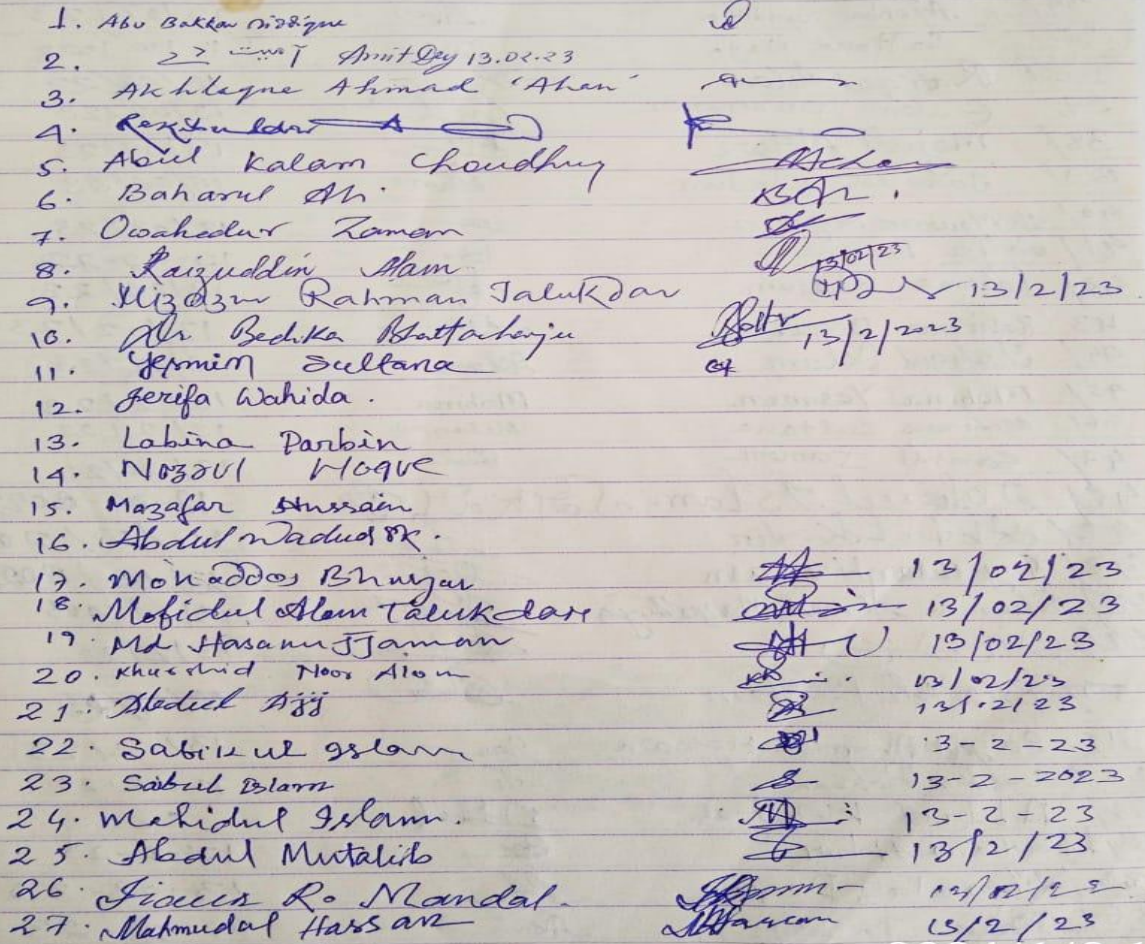 1. Abu Bakkar Siddique
2. Amit Dey 13.02.23
3. Akhlaque Ahmad 'Ahan'
4.
5. Abul Kalam Choudhury
6. Baharul Ali
7. Owahedur Zaman
8. Raizuddin Alam 13/02/23
9. Mizazur Rahman Talukdar 13/2/23
10. Dr Bedika Bhattacharjee 13/2/2023
11. Yesmin Sultana
12. Jerifa Wahida.
13. Labina Parbin
14. Nozrul Hoque
15. Mazafar Hussain
16. Abdul Wadud Sk.
17. Mokaddos Bhuyan 13/02/23
18. Mofidul Alam Talukdare 13/02/23
19. Md HasanuJJaman 13/02/23
20. Khurshid Noor Alom 13/02/23
21. Abdul Ajij 13/02/23
22. Sabikul Islam 13-2-23
23. Saibul Islam 13-2-2023
24. Mahidul Islam. 13-2-23
25. Abdul Mutalib 13/2/23
26. R. Mandal.
27. Mahmudal Hassan 13/2/23